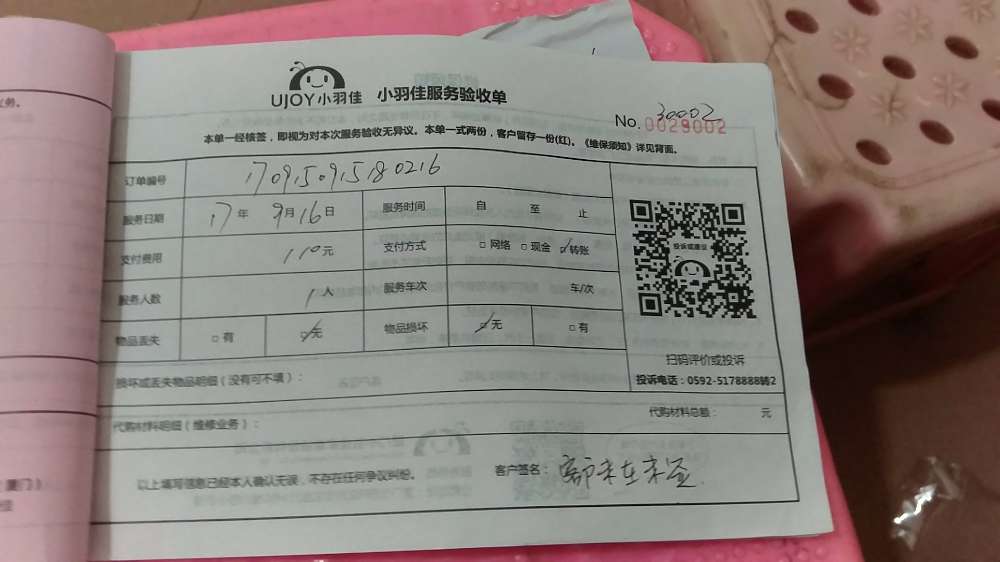 UJOY小羽佳 小羽佳服务验收单
30002
No.0029002
本单一经核签，即视为对本次服务验收无异议。本单一式两份，客户留存一份(红)。《维保须知》详见背面。
订单编号 170915091580216
服务日期 17年 9月16日 服务时间 自 至 止
支付费用 110元 支付方式 □网络 □现金 ☑转账
服务人数 1人 服务车次 车/次
物品丢失 □有 ☑无 物品损坏 ☑无 □有
投诉或建议
扫码评价或投诉
投诉电话：0592-5178888转2
损坏或丢失物品明细（没有可不填）：
代购材料明细（维修业务）： 代购材料总额： 元
以上填写信息已经本人确认无误，不存在任何争议纠纷。 客户签名： 客户未在未签
厦门）
务。